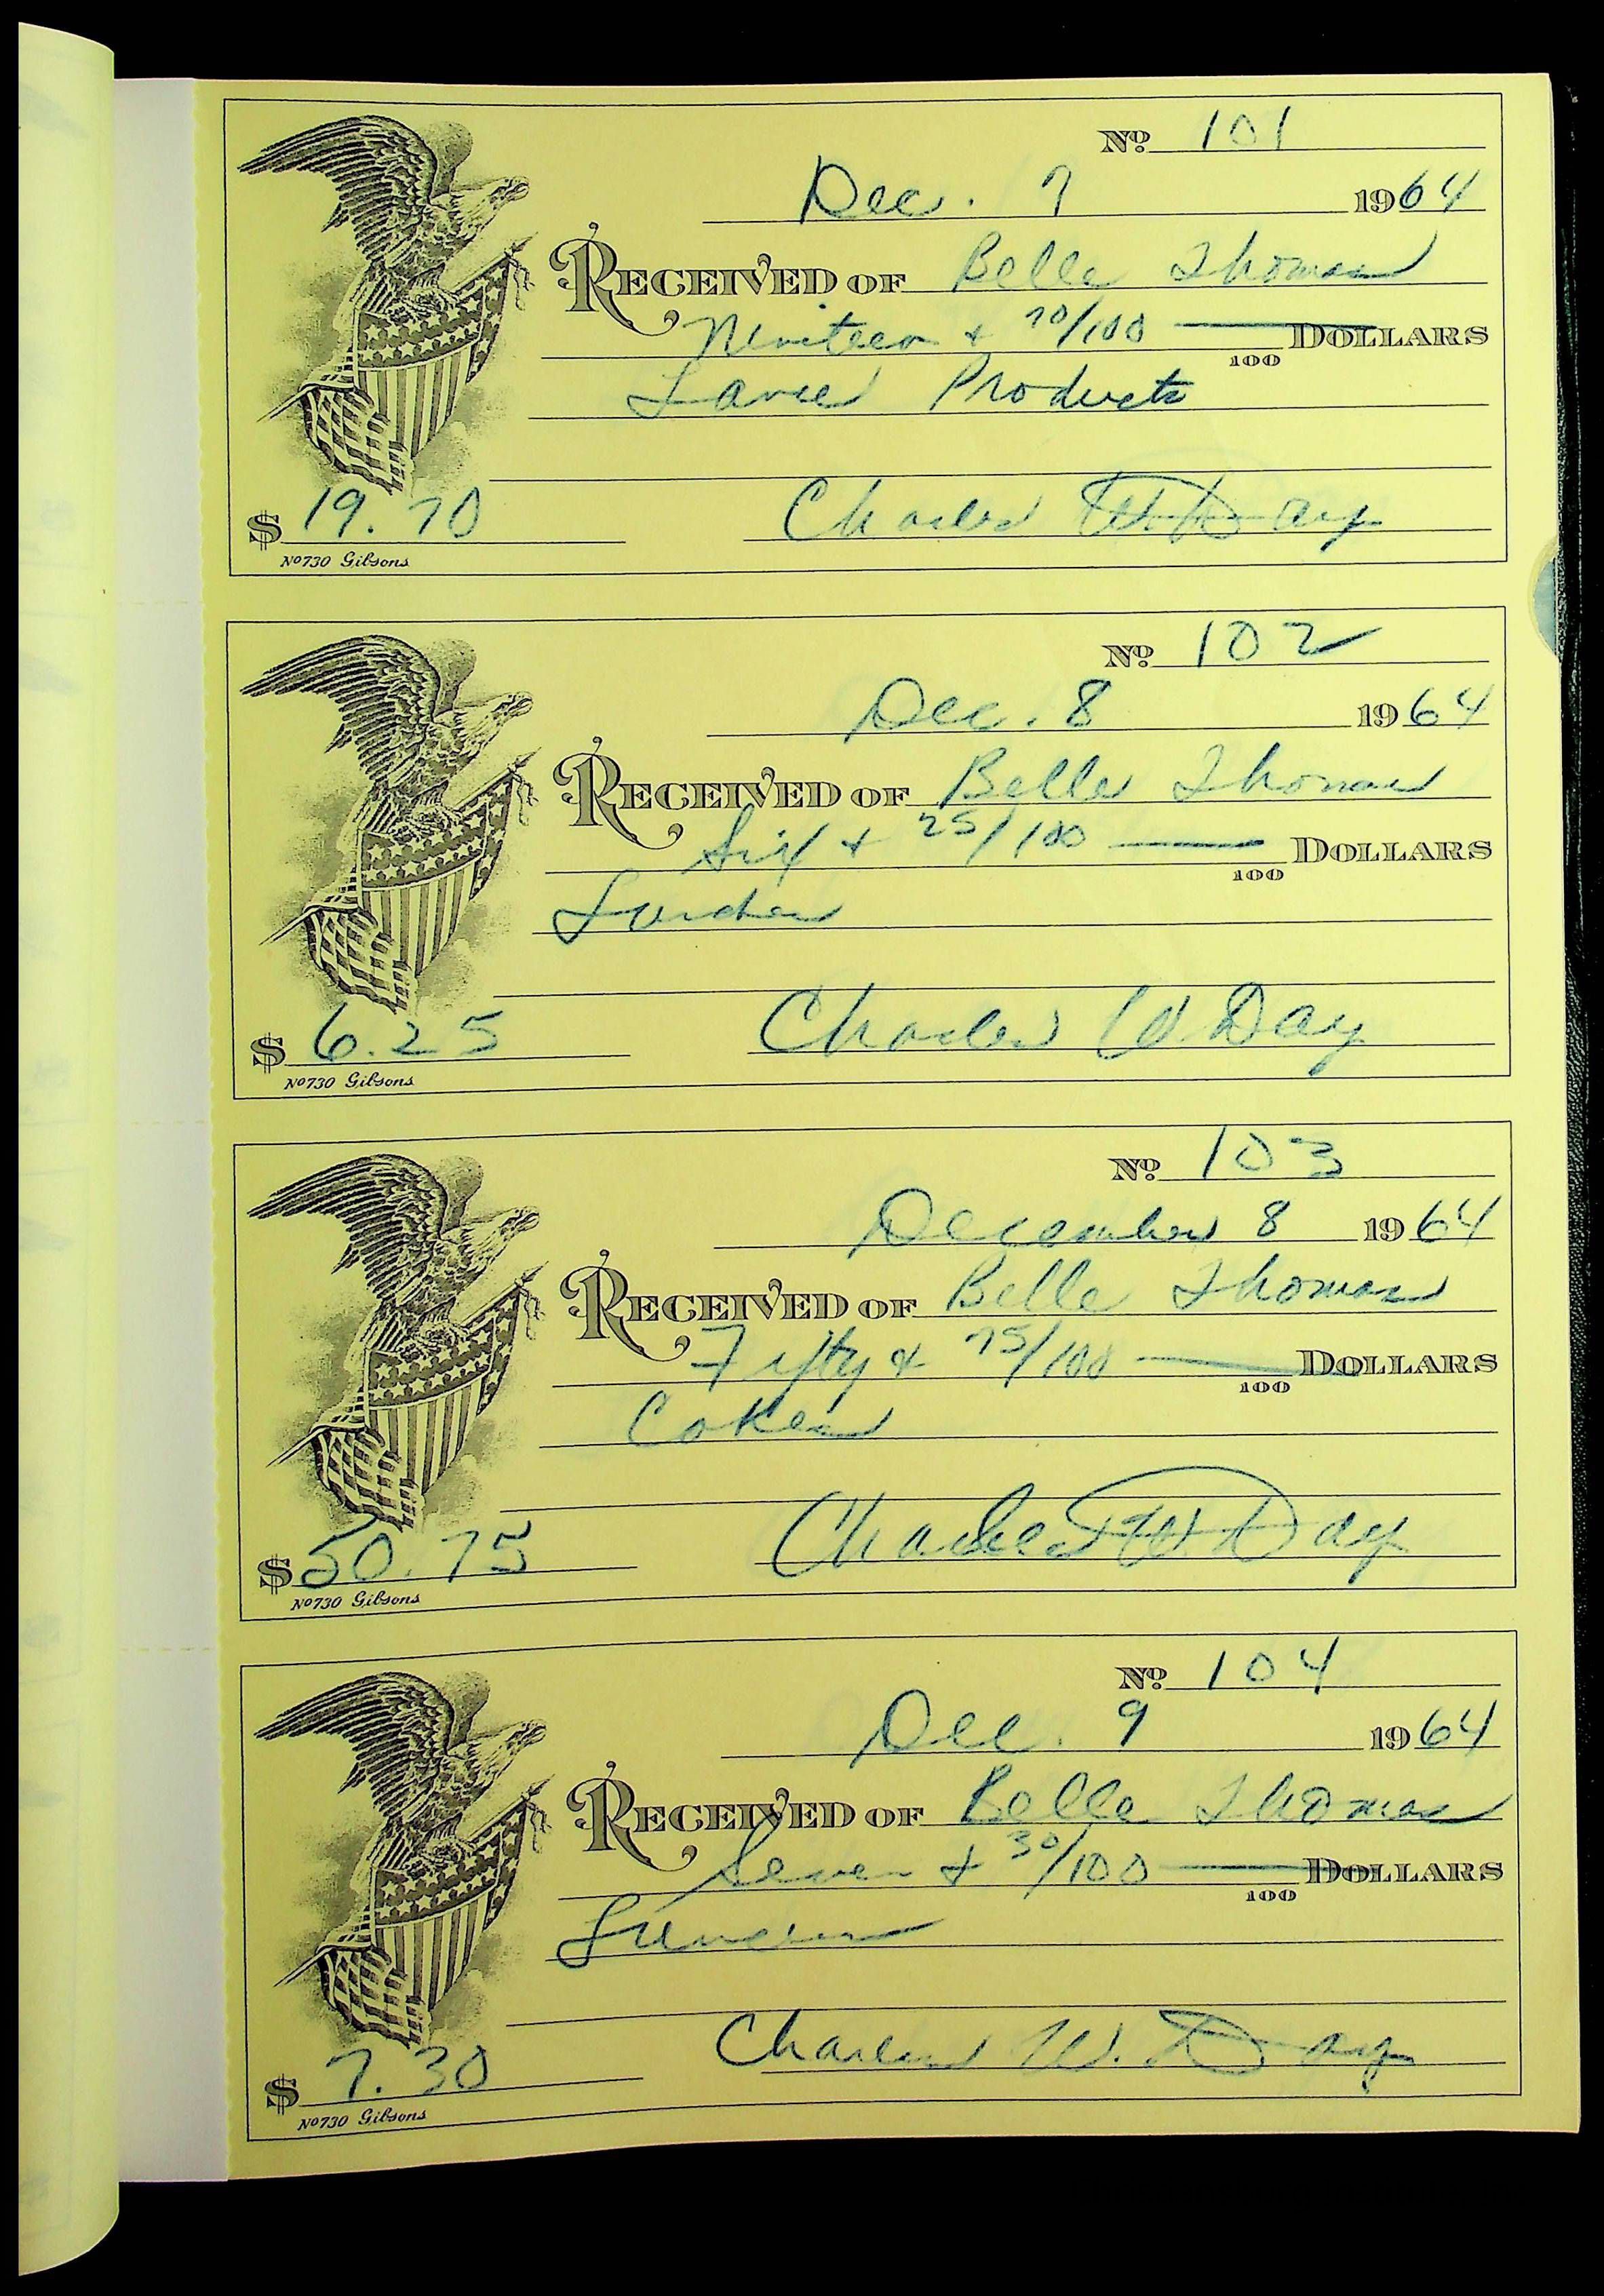 No. 101
Dec. 7 1964
RECEIVED OF Belle Thomas
Nineteen + 70/100 — DOLLARS
100
Lance Products
$ 19.70 Charles W. Day
No 730 Gibsons
No. 102
Dec. 8 1964
RECEIVED OF Belle Thomas
Six + 25/100 — DOLLARS
100
$ 6.25 Charles W. Day
No 730 Gibsons
No. 103
December 8 1964
RECEIVED OF Belle Thomas
Fifty + 75/100 — DOLLARS
100
Cokes
$ 50.75 Charles W. Day
No 730 Gibsons
No. 104
Dec. 9 1964
RECEIVED OF Belle Thomas
Seven + 30/100 — DOLLARS
100
$ 7.30 Charles W. Day
No 730 Gibsons